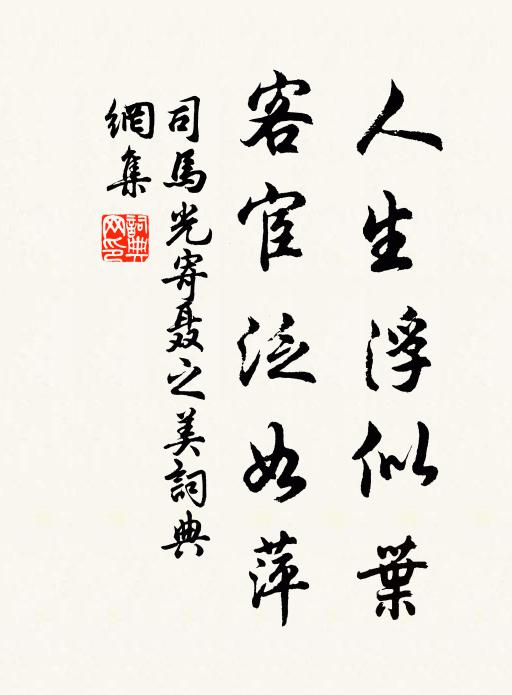 人生浮似葉
客宦泛如萍
司馬光寄聶之美詞典
網集
詞典網印